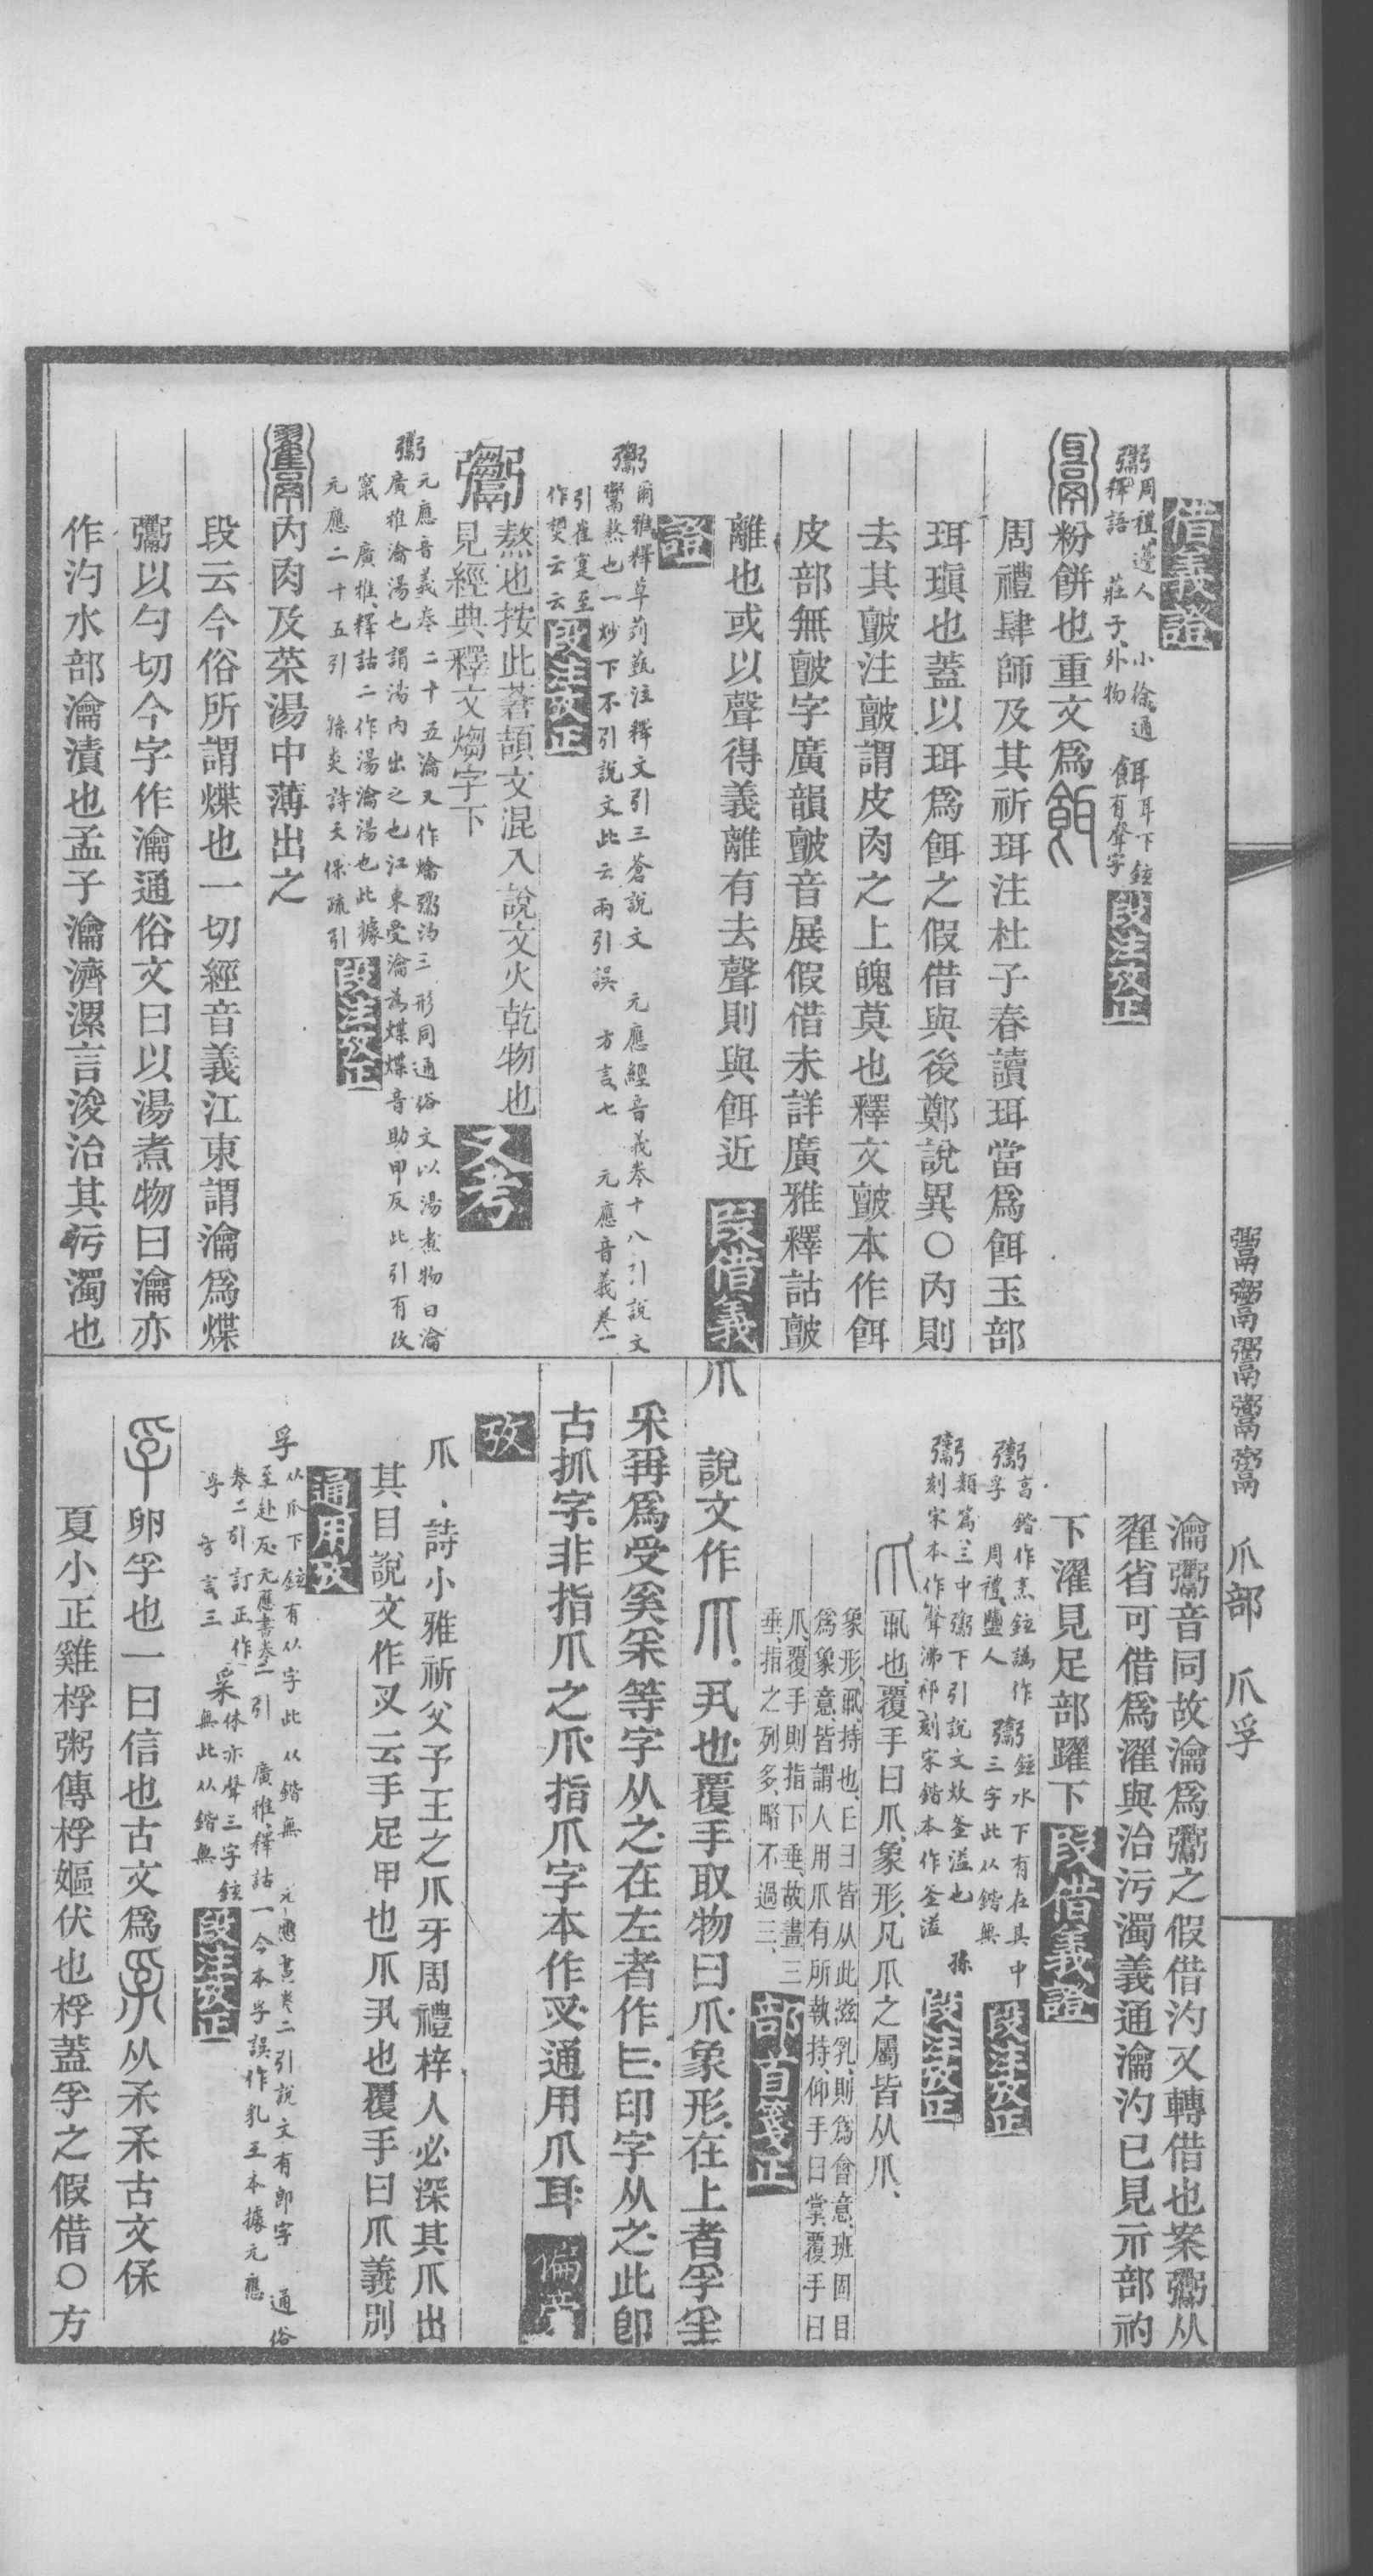 借義證
周禮、籩人　小徐、通　餌耳下鉉
釋語　莊子、外物　有聲字
段注攷正
粉餅也重文爲
周禮肆師及其祈珥注杜子春讀珥當爲餌玉部
珥瑱也蓋以珥爲餌之假借與後鄭說異○內則
去其皽注皽謂皮肉之上魄莫也釋文皽本作餌
皮部無皽字廣韻皽音展假借未詳廣雅釋詁皽
離也或以聲得義離有去聲則與餌近
段借義
證
爾雅釋草葥甄注釋文引三蒼說文　元應經音義卷十八引說文
鬻熬也一炒下不引說文此云兩引誤　方言七　元應音義卷一
引崔寔至
作煑云云
段注攷正
熬也按此蒼頡文混入說文火乾物也
見經典釋文煼字下
又考
元應音義卷二十五瀹又作爚汋三形同通俗文以湯煮物曰瀹
廣雅瀹湯也謂湯內出之也江東受瀹爲煠煠音助甲反此引有改
竄　廣雅、釋詁二作湯瀹湯也此據
元應二十五引　孫炎詩天保疏引
段注攷正
內肉及菜湯中薄出之
段云今俗所謂煠也一切經音義江東謂瀹爲煠
鬻以勺切今字作瀹通俗文曰以湯煮物曰瀹亦
作汋水部瀹漬也孟子瀹濟漯言浚治其污濁也
瀹鬻音同故瀹爲鬻之假借汋又轉借也案鬻从
翟省可借爲濯與治污濁義通瀹汋已見示部礿
下濯見足部躍下
段借義證
高鍇作烹鉉譌作　鉉水下有在其中
孚　周禮、鹽人　三字此从鍇無
段注攷正
類篇、三中　下引說文炊釜溢也　孫
刻宋本作聲沸祁刻宋鍇本作釜溢
段注攷正
爪
丮也、覆手曰爪、象形、凡爪之屬皆从爪、
象形、丮、持也、𠃨曰皆从此滋乳、則爲會意、班固目
爲象意、皆謂人用爪有所執持、仰手曰掌、覆手曰
爪、覆手則指下垂、故畫三
垂、指之列多、略不過三、
部首箋正
爪　說文作爪丮也覆手取物曰爪象形在上者孚
采爯爲受奚采等字从之在左者作𠃨印字从之此卽
古抓字非指爪之爪指爪字本作叉通用爪耳
攷
爪　詩小雅祈父予王之爪牙周禮梓人必深其爪出
其目說文作叉云手足甲也爪丮也覆手曰爪義別
通用攷
孚
从爪下鉉有从字此从鍇無　元應書卷二引說文有卽字　通俗
至赴反元應書卷二引　廣雅、釋詁一今本孚誤作乳王本據元應
卷二引訂正作采　亦聲三字鉉
孚　方言三　無此从鍇無
段注攷正
孚卵孚也一曰信也古文爲　从𤓽𤓽古文保
夏小正雞桴粥傳桴嫗伏也桴蓋孚之假借○方
爪部　爪孚